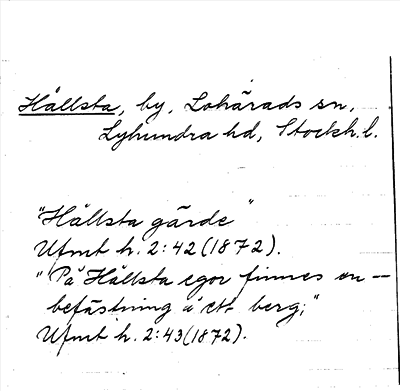 Hållsta, by, Lohärads sn,
Lyhundra hd, Stockh. l.
"Hållsta gärde"
Ufmt h. 2:42 (1872).
"På Hållsta egor finnes en --
befästning å ett berg;"
Ufmt h. 2:43 (1872).